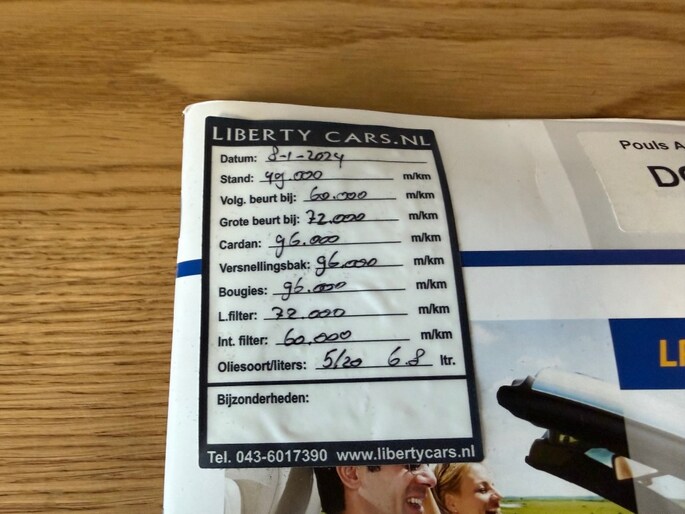 LIBERTY CARS.NL
Datum: 8-1-2024
Stand: 49.000 m/km
Volg. beurt bij: 60.000 m/km
Grote beurt bij: 72.000 m/km
Cardan: 96.000 m/km
Versnellingsbak: 96.000 m/km
Bougies: 96.000 m/km
L.filter: 72.000 m/km
Int. filter: 60.000 m/km
Oliesoort/liters: 5/20 6.8 ltr.
Bijzonderheden:
Tel. 043-6017390 www.libertycars.nl
Pouls A